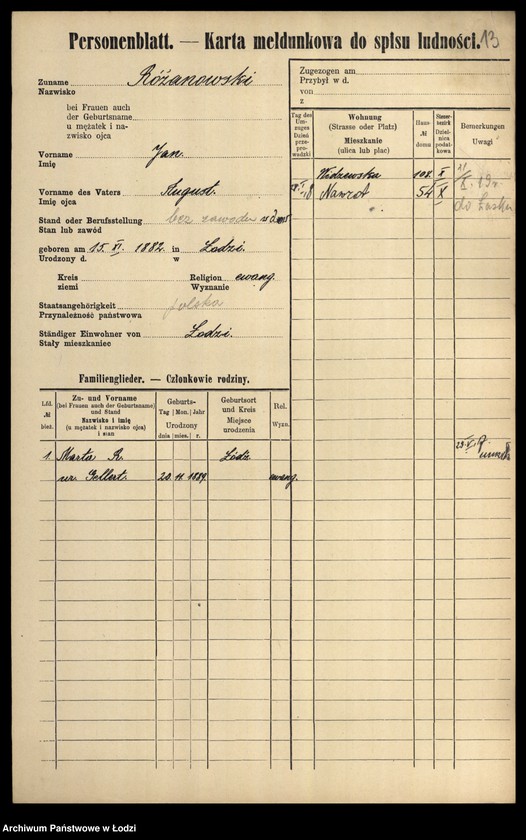 Personenblatt. — Karta meldunkowa do spisu ludności. 13
Zuname
Nazwisko
Różanowski
bei Frauen auch
der Geburtsname
u mężatek i na-
zwisko ojca
Vorname
Imię
Jan.
Vorname des Vaters
Imię ojca
August.
Stand oder Berufsstellung
Stan lub zawód
bez zawodu
geboren am 15. XI. 1882. in Lodzi.
Urodzony d. w
Kreis
ziemi
Religion ewang.
Wyznanie
Staatsangehörigkeit
Przynależność państwowa
polska
Ständiger Einwohner von
Stały mieszkaniec
Łodzi.
Zugezogen am
Przybył w d.
von
z
Tag des Um-
zuges
Dzień
prze-
prowadzki
Wohnung
(Strasse oder Platz)
Mieszkanie
(ulica lub plac)
Haus-
№
domu
Steuer-
bezirk
Dziel-
nica
podat-
kowa
Bemerkungen
Uwagi
Widzewska 108. X
Nawrot 54 X
do Łasku
Familienglieder. — Członkowie rodziny.
Lfd.
№
bież.
Zu- und Vorname
(bei Frauen auch der Geburtsname)
und Stand
Nazwisko i imię
(u mężatek i nazwisko ojca)
i stan
Geburts-
Tag Mon. Jahr
Urodzony
dnia mies. r.
Geburtsort
und Kreis
Miejsce
urodzenia
Rel.
Wyzn.
1. Marta R. Łódź
ur. Gellert. 20. 11. 1889. ewang.
Archiwum Państwowe w Łodzi